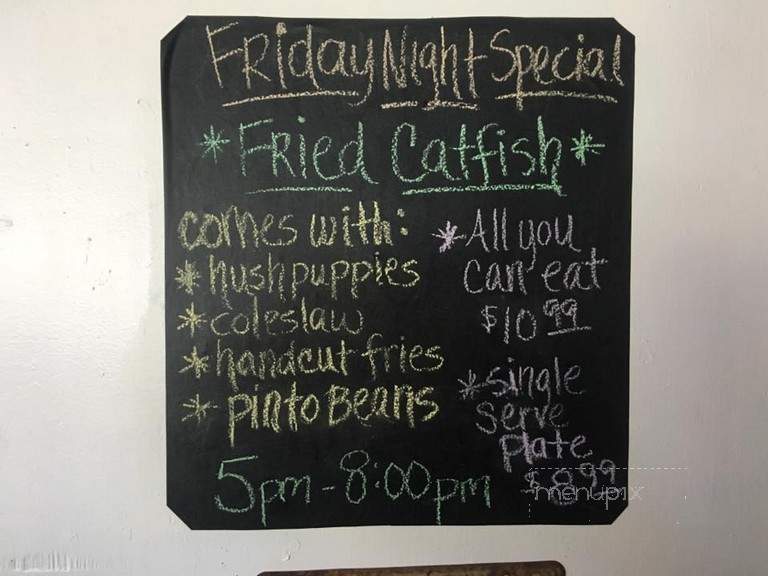 Friday Night Special
* Fried Catfish *
comes with:
* hushpuppies
* coleslaw
* handcut fries
* pinto Beans
* All you
can eat
$10.99
* single
serve
plate
$8.99
5pm - 8:00pm
menupix